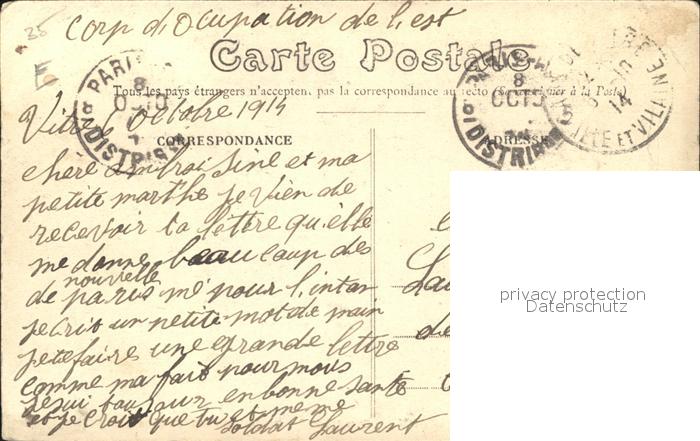 35
Corp d'Ocupation de l'est
Carte Postale
Tous les pays étrangers n'acceptent pas la correspondance au recto (Se renseigner à la Poste)
Vitré 6 Octobre 1914
CORRESPONDANCE
ADRESSE
PARIS
8
OCTO
DISTRIB
PARIS
8
OCTO
DISTRIB
14
ILLE ET VILAINE
chère Ambroisine et ma
petite marthe je vien de
recevoir ta lettre qu'elle
me donne beaucoup des
nouvelle
de paris mé pour l'intan
je cris un petit mot de main
je te faires une grande lettre
comme ma fait pour mois
je sui toujour en bonne sante
et je crois que tu et meme
Soldat Laurent
privacy protection
Datenschutz